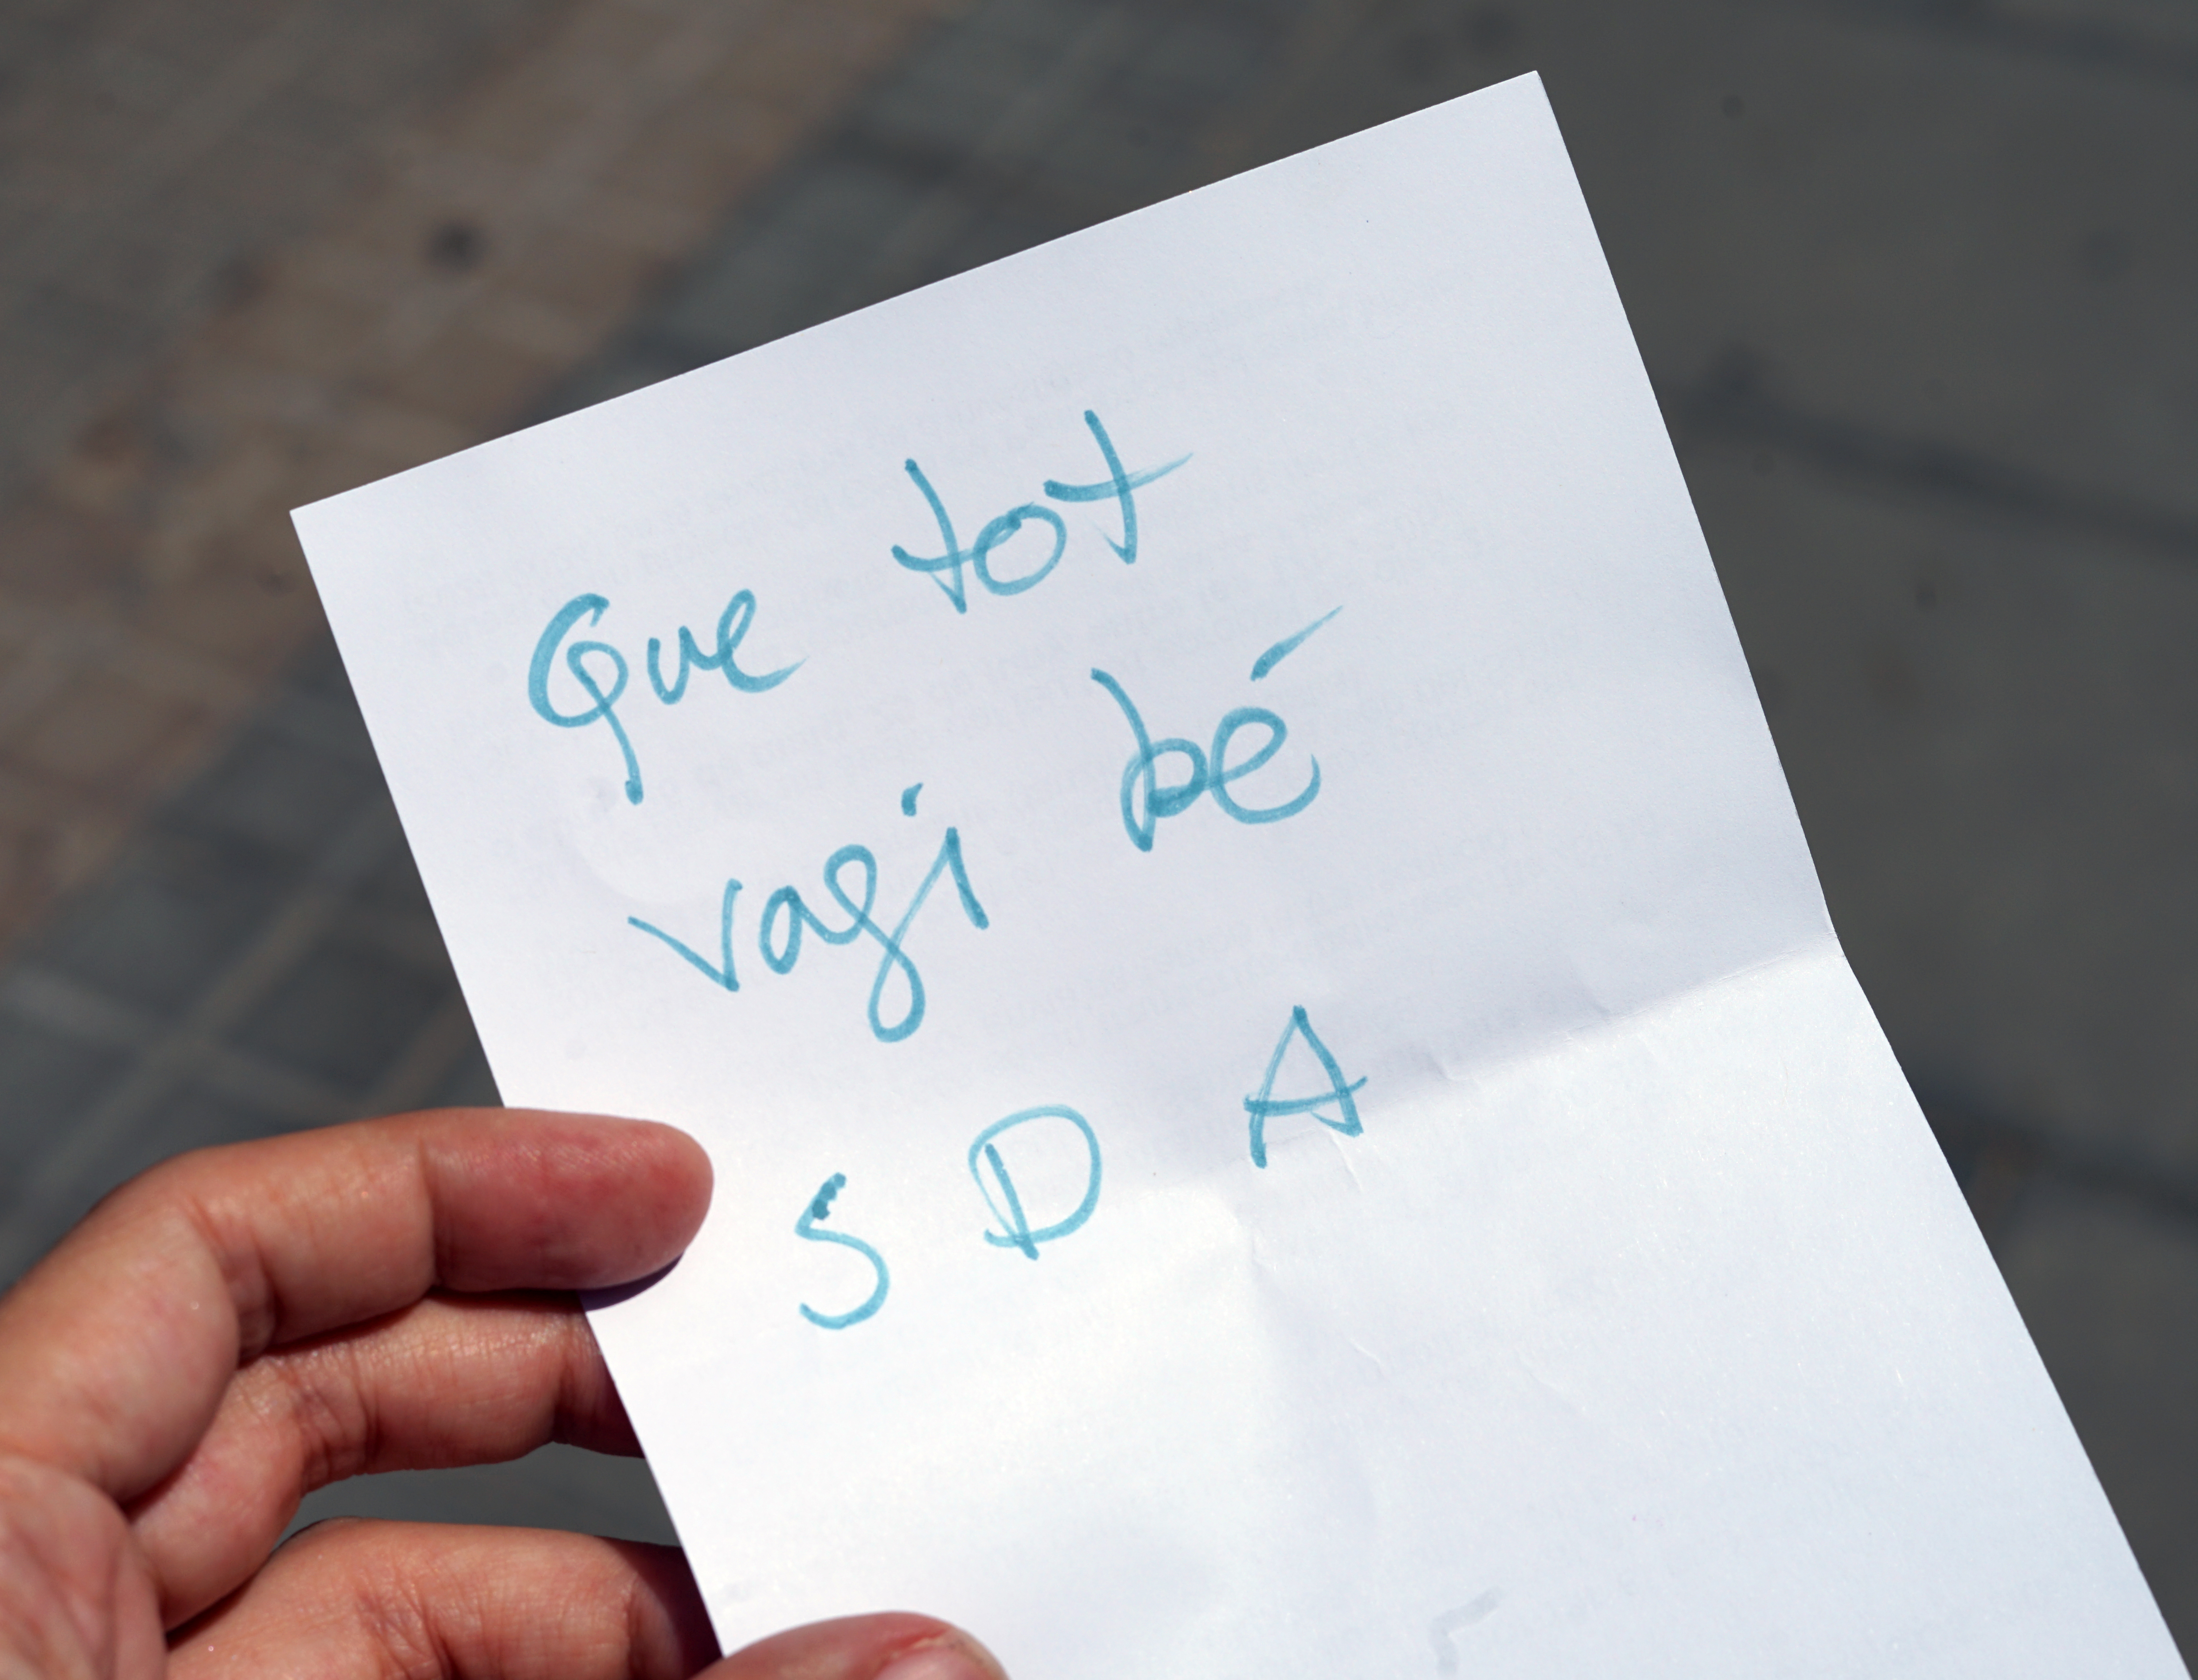 Que tot
vagi bé
S D A